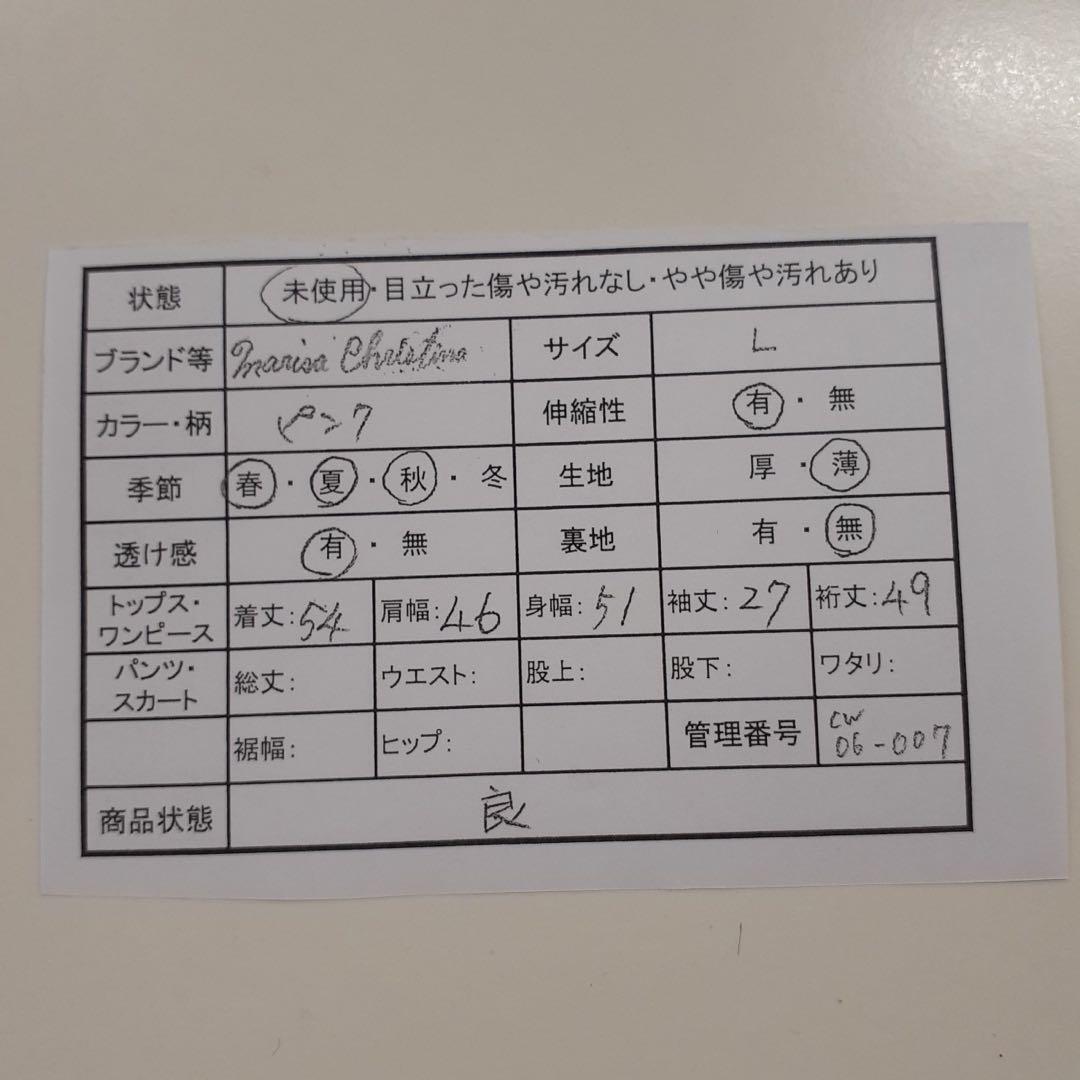 状態 未使用・目立った傷や汚れなし・やや傷や汚れあり
ブランド等 Marisa Christina サイズ L
カラー・柄 ピンク 伸縮性 有・無
季節 春・夏・秋・冬 生地 厚・薄
透け感 有・無 裏地 有・無
トップス・ワンピース 着丈:54 肩幅:46 身幅:51 袖丈:27 裄丈:49
パンツ・スカート 総丈: ウエスト: 股上: 股下: ワタリ:
裾幅: ヒップ: 管理番号 CW 06-007
商品状態 良